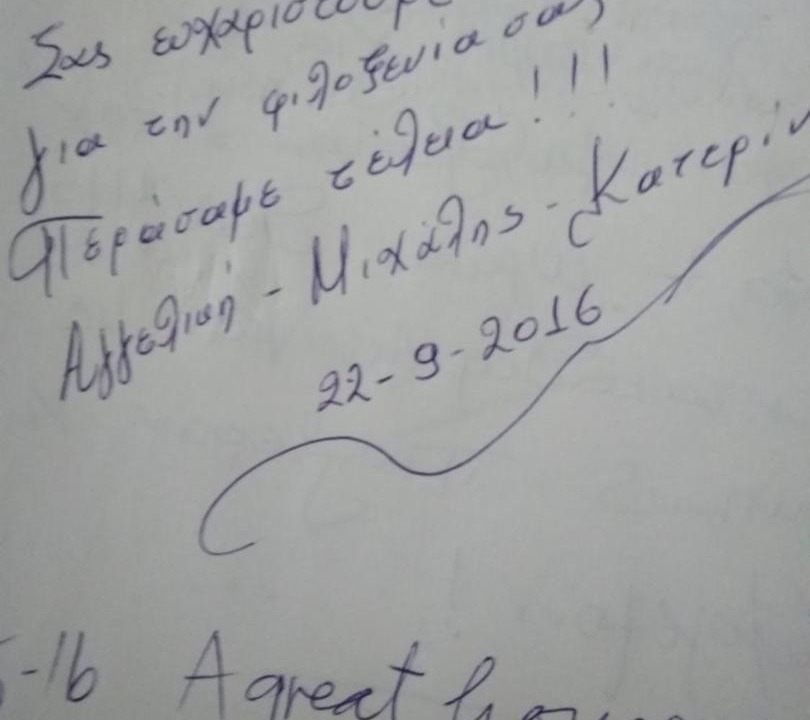 Σας ευχαριστούμε
για την φιλοξενία σας
Περάσαμε τέλεια!!!
Αγγελική - Μιχάλης - Κατερίν
22-9-2016
-16 A great